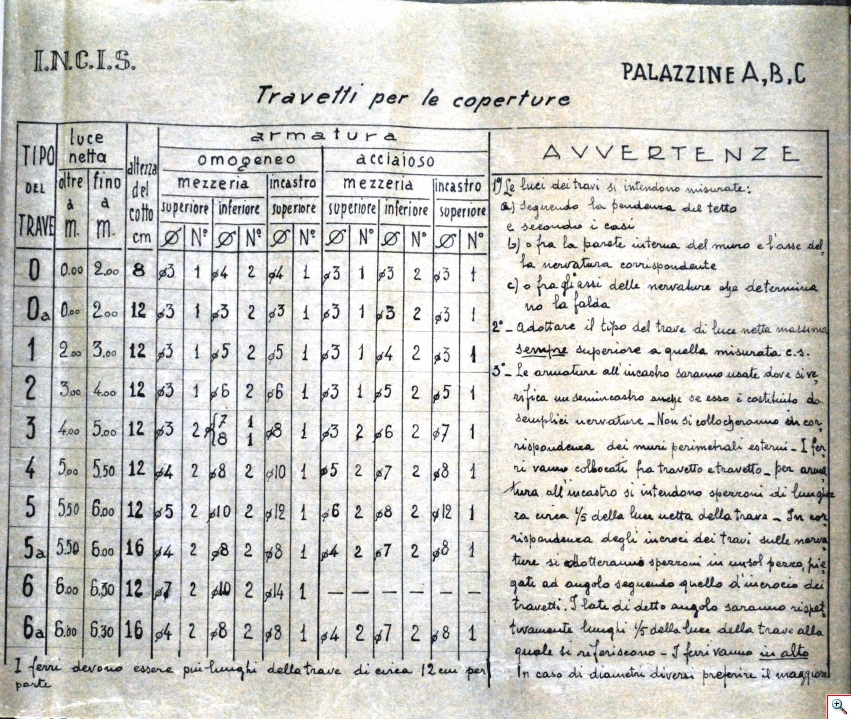 I.N.C.I.S.
PALAZZINE A, B, C
Travetti per le coperture
TIPO DEL TRAVE
luce netta
oltre a m.
fino a m.
altezza del cotto cm
armatura
omogeneo
acciaioso
mezzeria incastro mezzeria incastro
superiore inferiore superiore superiore inferiore superiore
Ø N° Ø N° Ø N° Ø N° Ø N° Ø N°
0 0.00 2.00 8 ø3 1 ø4 2 ø4 1 ø3 1 ø3 2 ø3 1
0a 0.00 2.00 12 ø3 1 ø3 2 ø3 1 ø3 1 ø3 2 ø3 1
1 2.00 3.00 12 ø3 1 ø5 2 ø5 1 ø3 1 ø4 2 ø3 1
2 3.00 4.00 12 ø3 1 ø6 2 ø6 1 ø3 1 ø5 2 ø5 1
3 4.00 5.00 12 ø3 2 ø{7 8 1 1 ø8 1 ø3 2 ø6 2 ø7 1
4 5.00 5.50 12 ø4 2 ø8 2 ø10 1 ø5 2 ø7 2 ø8 1
5 5.50 6.00 12 ø5 2 ø10 2 ø12 1 ø6 2 ø8 2 ø12 1
5a 5.50 6.00 16 ø4 2 ø8 2 ø8 1 ø4 2 ø7 2 ø8 1
6 6.00 6.30 12 ø7 2 ø10 2 ø14 1 — — — — — —
6a 6.00 6.30 16 ø4 2 ø8 2 ø8 1 ø4 2 ø7 2 ø8 1
I ferri devono essere più lunghi della trave di circa 12 cm per
parte
AVVERTENZE
1°) Le luci dei travi si intendono misurate:
a) seguendo la pendenza del tetto
e secondo i casi
b) o fra la parete interna del muro e l'asse del
la nervatura corrispondente
c) o fra gli assi delle nervature che determina
no la falda
2° - Adottare il tipo del trave di luce netta massima
sempre superiore a quella misurata c.s.
3° - Le armature all'incastro saranno usate dove si ve,
rifica un semincastro anche se esso è costituito da
semplici nervature - Non si collocheranno in cor,
rispondenza dei muri perimetrali esterni - I fer
ri vanno collocati fra travetto e travetto - per arma,
tura all'incastro si intendono sperzoni di lunghez
za circa 1/5 della luce netta della trave - In cor
rispondenza degli incroci dei travi sulle nerva,
ture si adotteranno sperzoni in un sol pezzo, pie,
gati ad angolo seguendo quello d'incrocio dei
travetti. I lati di detto angolo saranno rispet,
tivamente lunghi 1/5 della luce della trave alla
quale si riferiscono - I ferri vanno in alto
In caso di diametri diversi preferire il maggiore